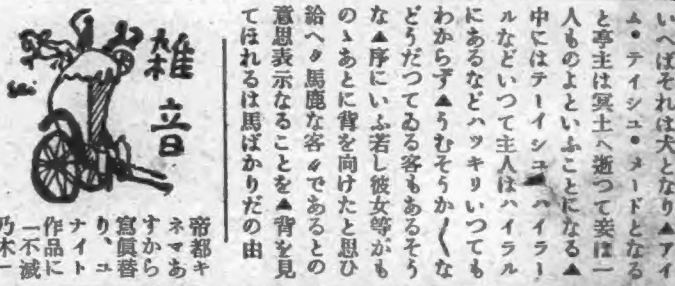 いへばそれは犬となり▲アイ
ム・テイシュ・メードとなる
と亭主は冥土へ逝つて妾は一
人ものよといふことになる▲
中にはテーイシユ▲ハイラー
ルなどいつて主人はハイラル
にあるなどハツキリいつても
わからず▲うむそうか〳〵な
どうだつてゐる客もあるそう
な▲序にいふ若し彼女等がも
のゝあとに背を向けたと思ひ
給へ〃馬鹿な客〃であるとの
意思表示なることを▲背を見
てほれるは馬ばかりだの由
雑音
帝都キ
ネマあ
すから
寫眞替
り、ユ
ナイト
作品に
一不滅
乃木一